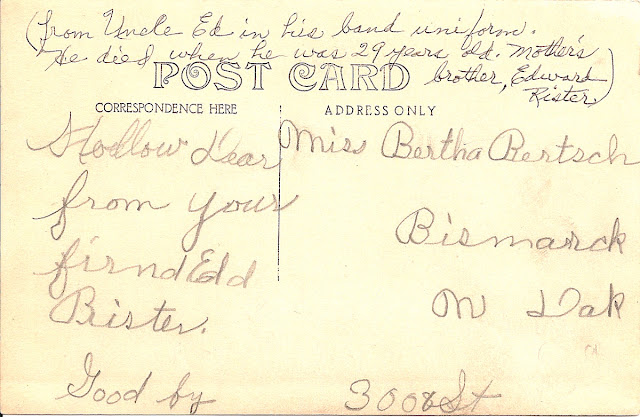 (from Uncle Ed in his band uniform.
He died when he was 29 years old. Mother's
brother, Edward
Rister)
POST CARD
CORRESPONDENCE HERE
ADDRESS ONLY
Hollow Dear
from your
firnd Edd
Rister.
Good by
Miss Bertha Bertsch
Bismarck
N Dak
300 8 St